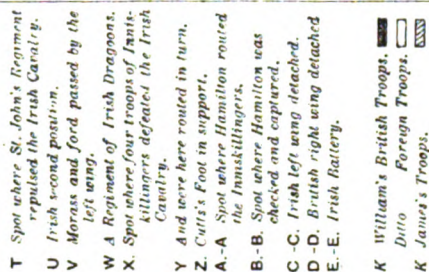 T Spot where St. John's Regiment
repulsed the Irish Cavalry.
U Irish second position.
V Morass and ford passed by the
left wing.
W A Regiment of Irish Dragoons.
X. Spot where four troops of Innis-
killingers defeated the Irish
Cavalry.
Y And were here routed in turn.
Z. Cutts's Foot in support.
A.-A Spot where Hamilton routed
the Inniskillingers.
B.-B. Spot where Hamilton was
checked and captured.
C-C. Irish left wing detached.
D-D. British right wing detached
E.-E. Irish Battery.
K William's British Troops.
Ditto Foreign Troops.
K James's Troops.